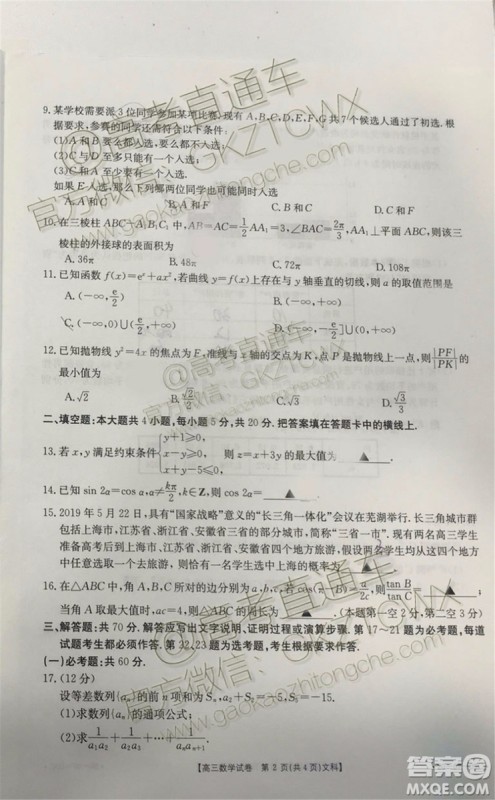 9. 某学校需要派3位同学参加某项比赛,现有A,B,C,D,E,F,G共7个候选人通过了初选.根
据要求,参赛的同学还需符合以下条件:
(1)A和B要么都入选,要么都不入选;
(2)C与D至多有一个人入选;
(3)E和A至少有一个入选.
如果E入选,那么下列哪两位同学也可能同时入选
A. A和F
B. B和F
C. B和C
D. C和F
10. 在三棱柱ABC-A₁B₁C₁中,AB=AC=1/2AA₁=3,∠BAC=2π/3,AA₁⊥平面ABC,则该三
棱柱的外接球的表面积为
A. 36π
B. 48π
C. 72π
D. 108π
11. 已知函数f(x)=eˣ+ax²,若曲线y=f(x)上存在与y轴垂直的切线,则a的取值范围
A. (-∞,e/2)
B. (-∞,e/2]
C. (-∞,0)∪(e/2,+∞)
D. (-∞,-e/2]∪(0,+∞)
12. 已知抛物线y²=4x的焦点为F,准线与x轴的交点为K,点P为抛物线上一点,则|PF|/|PK|的
最小值为
A. √2
B. √2/2
C. √3
D. √3/2
二、填空题:本大题共4小题,每小题5分,共20分.把答案填在答题卡中的横线上.
13. 若x,y满足约束条件{y+1≥0, x-y≤0, x+y≤0,则z=x+3y的最大值为 ▲ .
14. 已知sin 2α=cos α,α≠kπ/2,k∈Z,则cos 2α= ▲ .
15. 2019年5月22日,具有“国家战略”意义的“长三角一体化”会议在芜湖举行.长三角城市群
包括上海市,江苏省、浙江省、安徽省三省一市,简称“三省一市”.现有两名高三学生
准备高考后到上海市、江苏省、浙江省、安徽省四个地方旅游,假设两名学生均从
四个地方中任意选取一个去旅游,则恰有一人选中上海的概率为 ▲ .
16. 在△ABC中,角A,B,C所对的边分别为a,b,c,若
当角A取最大值时,ac=4,则△ABC的周长为 ▲ .(本题第一空2分,第二空3分)
三、解答题:共70分.解答应写出文字说明、证明过程或演算步骤.第17~21题为必考题,每道
试题考生都必须作答.第22、23题为选考题,考生根据要求作答.
(一)必考题:共60分.
17. (12分)
设等差数列{aₙ}的前n项和为Sₙ,a₂+S₂=-5,S₅=-15.
(1)求数列{aₙ}的通项公式;
(2)求1/a₁a₂+1/a₂a₃+…+
【高三数学试卷 第2页(共4页)文科】
@高考直通车
官方微信:GKZTCWX
@高考直通车
官方微信:GKZTCWX
@高考直通车
www.gaokaozhitongche.com
答案圈
MXQE.COM